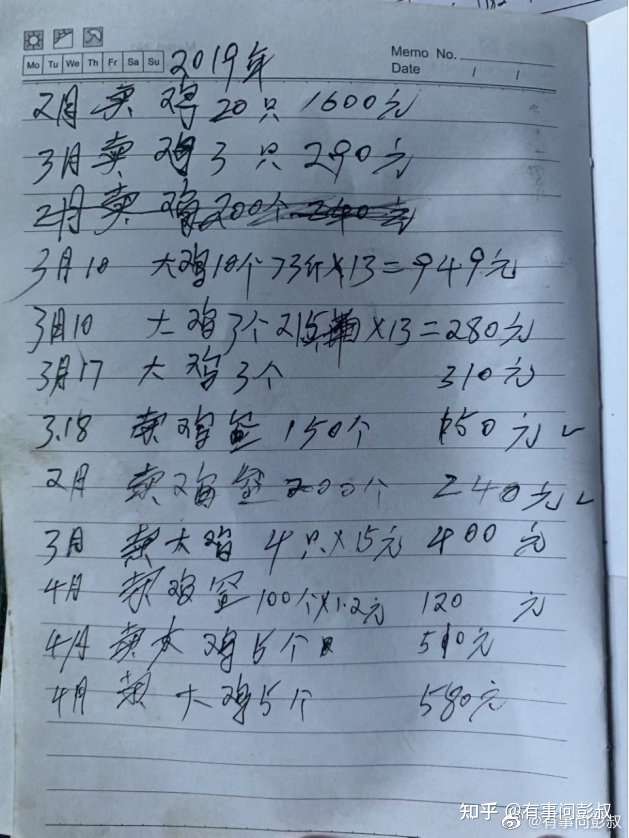 Memo No.
Mo Tu We Th Fr Sa Su 2019年
Date / /
2月 卖鸡20只 1600元
3月 卖鸡3只 290元
2月 卖鸡200个 240元
3月10 大鸡10个73斤×13=949元
3月10 大鸡3个215 ×13=280元
3月17 大鸡3个 310元
3.18 卖鸡蛋 150个 150元✓
2月 卖鸡蛋 200个 240元✓
3月 卖大鸡 4只×15元 400元
4月 卖鸡蛋 100个×1.2元 120元
4月 卖大鸡5个 510元
4月 卖大鸡5个 580元
知乎 @有事问彭叔
@有事问彭叔